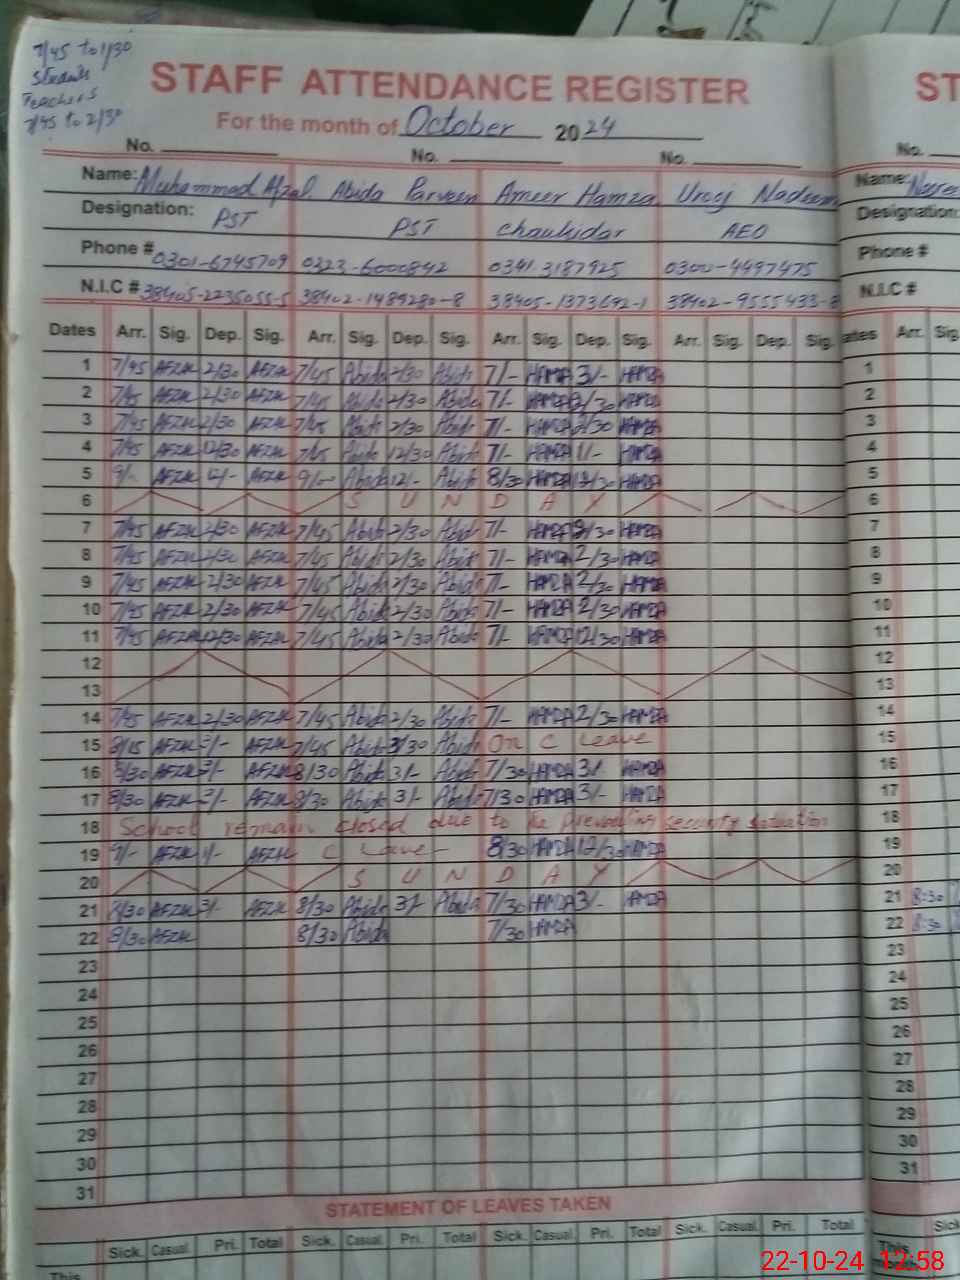 7/45 to 1/30
Students
Teachers
7/45 to 2/30
STAFF ATTENDANCE REGISTER ST
For the month of October 2024
No. No. No. No.
Name: Muhammad Afzal Abida Parveen Ameer Hamza Urooj Nadeem Name:
Designation: PST PST Chaukidar AEO Designation:
Phone # 0301-6745709 0323-6000842 0341-3187925 0300-4497475 Phone #
N.I.C # 38405-2235055-5 38402-1489280-8 38405-1373692-1 38402-9555433-8 N.I.C #
Dates Arr. Sig. Dep. Sig. Arr. Sig. Dep. Sig. Arr. Sig. Dep. Sig. Arr. Sig. Dep. Sig. Dates Arr. Sig.
1 7/45 AFZAL 2/30 AFZAL 7/45 Abida 2/30 Abida 7/- HAMZA 3/- HAMZA 1
2 7/45 AFZAL 2/30 AFZAL 7/45 Abida 2/30 Abida 7/- HAMZA 2/30 HAMZA 2
3 7/45 AFZAL 2/30 AFZAL 7/45 Abida 2/30 Abida 7/- HAMZA 2/30 HAMZA 3
4 7/45 AFZAL 12/30 AFZAL 7/45 Abida 12/30 Abida 7/- HAMZA 1/- HAMZA 4
5 9/- AFZAL AFZAL 9/- Abida 12/- Abida 8/30 HAMZA 12/30 HAMZA 5
6 S U N D A Y 6
7 7/45 AFZAL 2/30 AFZAL 7/45 Abida 2/30 Abida 7/- HAMZA 2/30 HAMZA 7
8 7/45 AFZAL 2/30 AFZAL 7/45 Abida 2/30 Abida 7/- HAMZA 2/30 HAMZA 8
9 7/45 AFZAL 2/30 AFZAL 7/45 Abida 2/30 Abida 7/- HAMZA 2/30 HAMZA 9
10 7/45 AFZAL 2/30 AFZAL 7/45 Abida 2/30 Abida 7/- HAMZA 2/30 HAMZA 10
11 7/45 AFZAL 12/30 AFZAL 7/45 Abida 2/30 Abida 7/- HAMZA 12/30 HAMZA 11
12 12
13 13
14 7/45 AFZAL 2/30 AFZAL 7/45 Abida 2/30 Abida 7/- HAMZA 2/30 HAMZA 14
15 8/15 AFZAL 3/- AFZAL 7/45 Abida 3/30 Abida On C Leave 15
16 8/30 AFZAL 3/- AFZAL 8/30 Abida 3/- Abida 7/30 HAMZA 3/- HAMZA 16
17 8/30 AFZAL 3/- AFZAL 8/30 Abida 3/- Abida 7/30 HAMZA 3/- HAMZA 17
18 School remain closed due to the prevailing security situation 18
19 9/- AFZAL 1/- AFZAL C Leave 8/30 HAMZA 12/30 HAMZA 19
20 S U N D A Y 20
21 8/30 AFZAL 3/- AFZAL 8/30 Abida 3/- Abida 7/30 HAMZA 3/- HAMZA 21 8:30
22 8/30 AFZAL 8/30 Abida 7/30 HAMZA 22 8:30
23 23
24 24
25 25
26 26
27 27
28 28
29 29
30 30
31 31
STATEMENT OF LEAVES TAKEN
Sick. Casual. Pri. Total Sick. Casual. Pri. Total Sick. Casual. Pri. Total Sick. Casual. Pri. Total Sick
This This
22-10-24 12:58